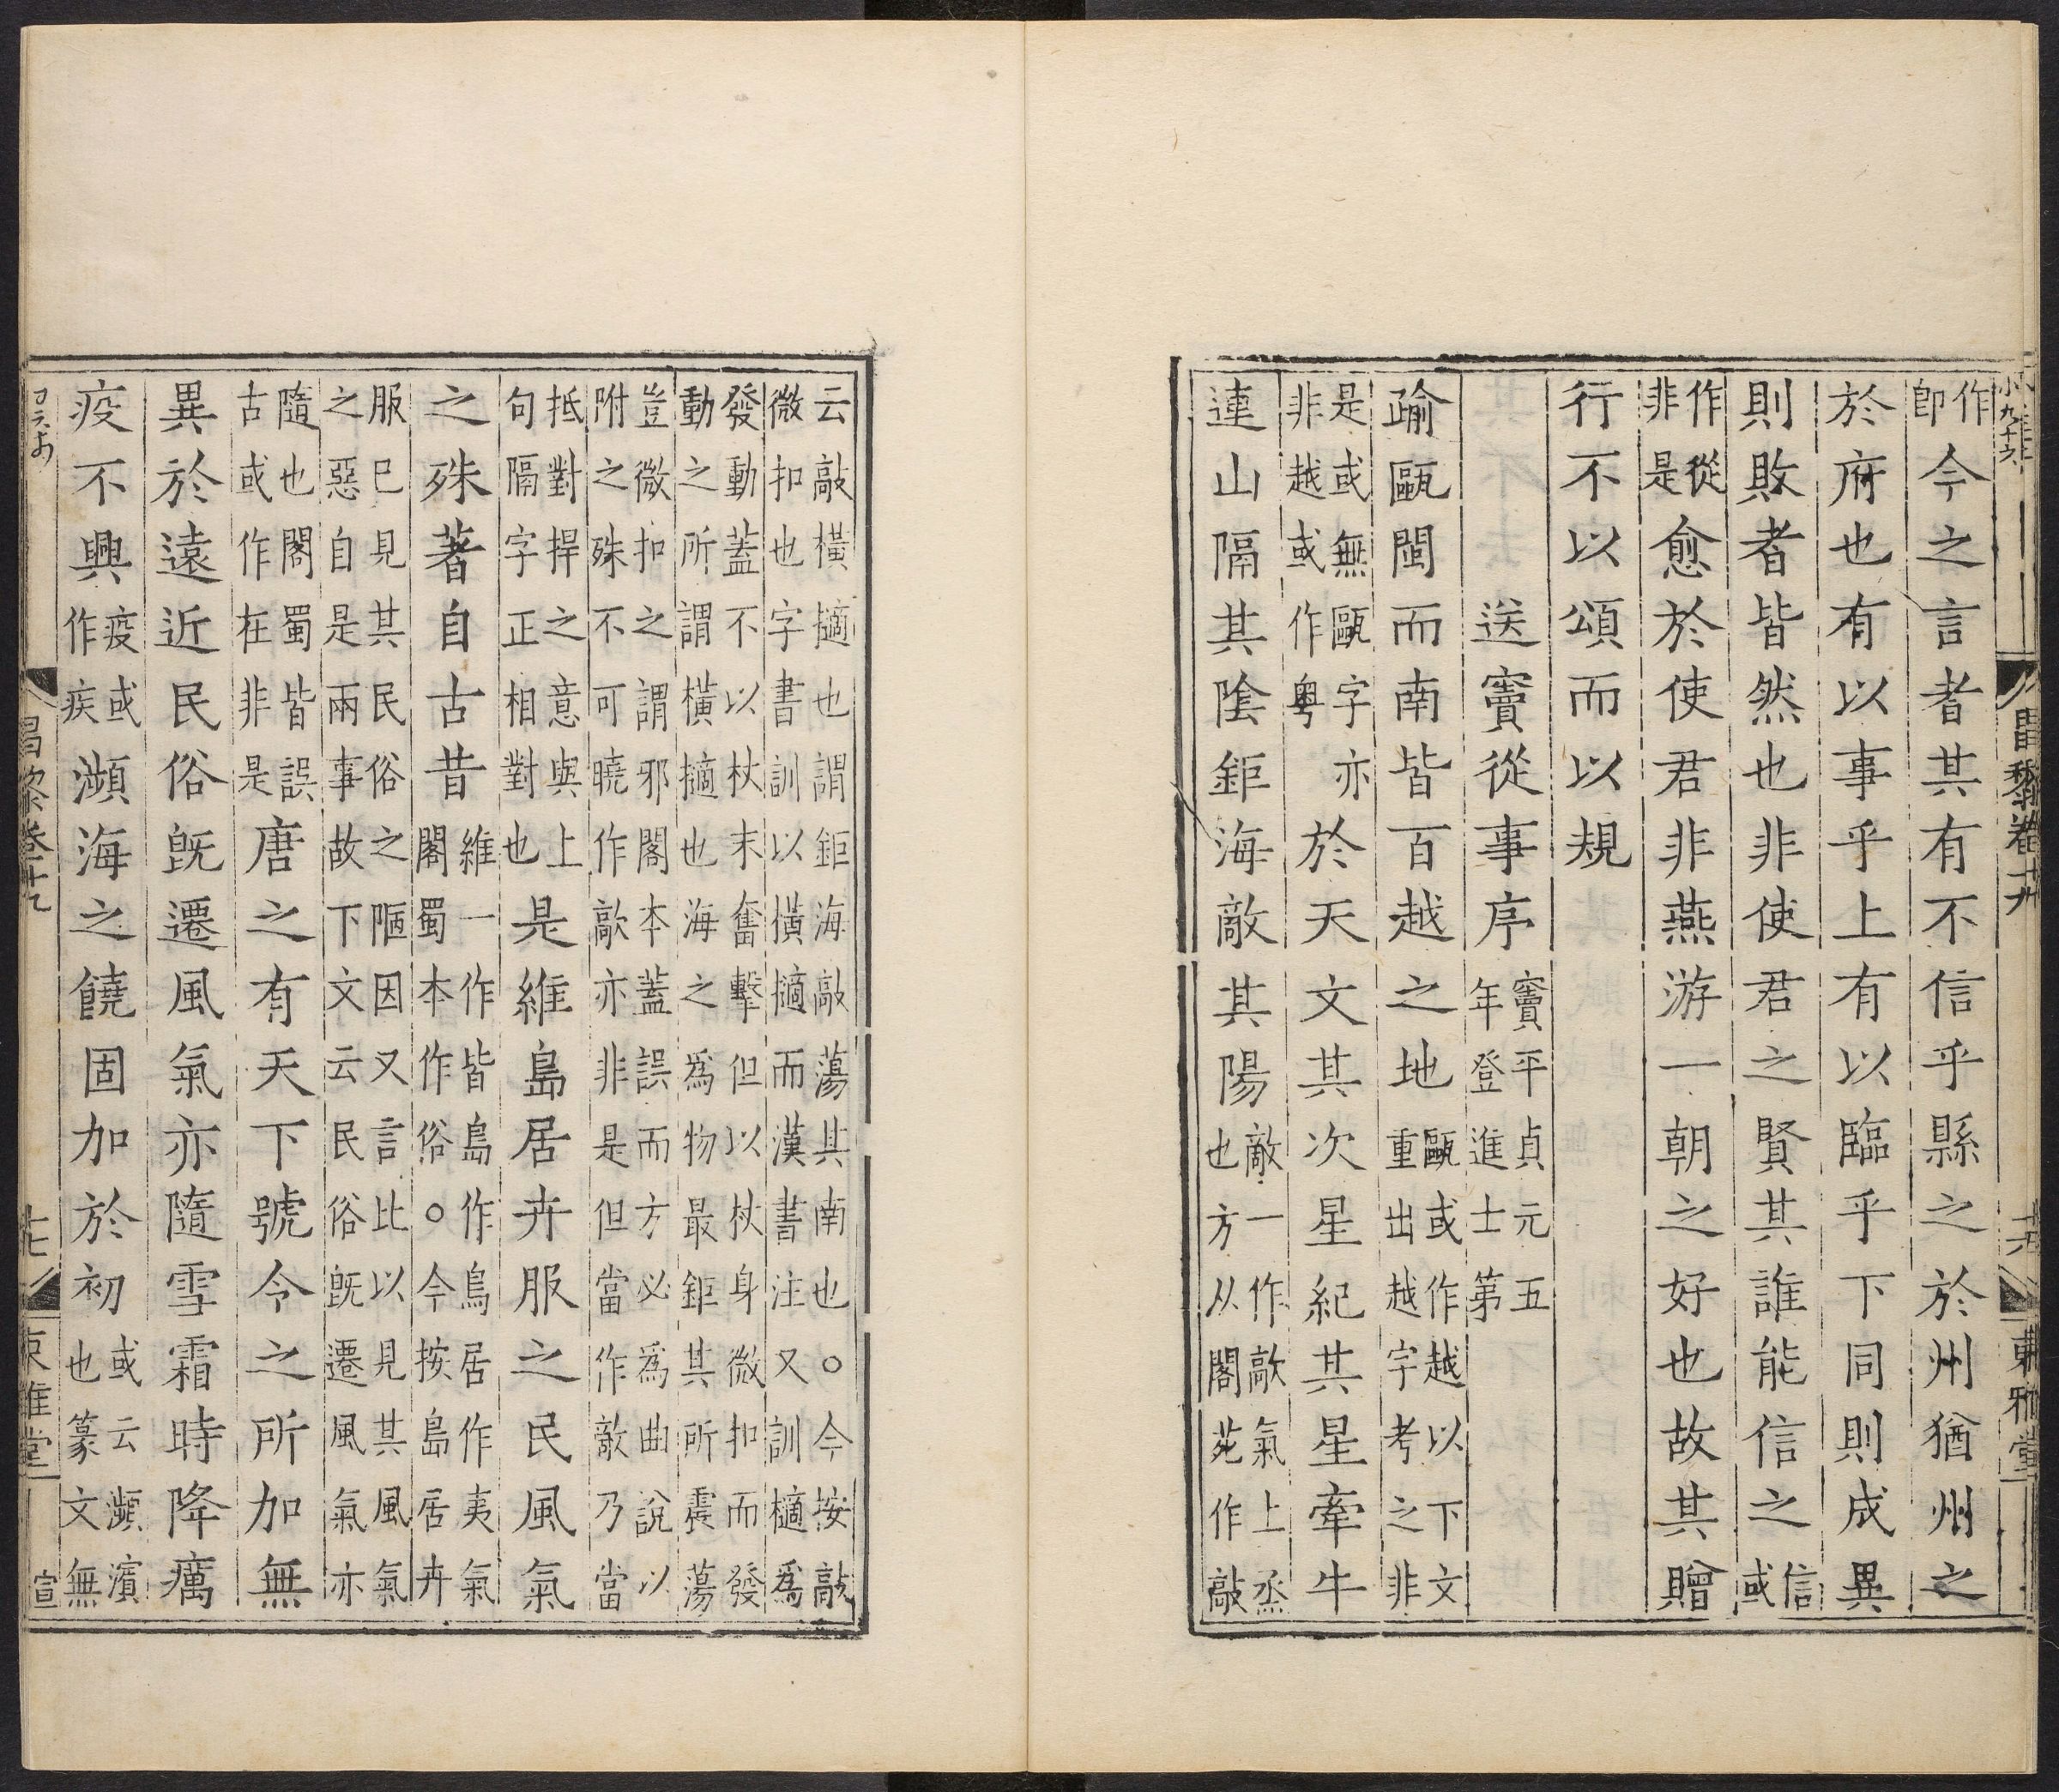 昌黎卷十九
東雅堂
作即今之言者其有不信乎縣之於州猶州之
於府也有以事乎上有以臨乎下同則成異
則敗者皆然也非使君之賢其誰能信之信或
作從非是愈於使君非燕游一朝之好也故其贈
行不以頌而以規
送竇從事序竇平貞元五年登進士第
踰甌閩而南皆百越之地甌或作越以下文重出越字考之非
是或無甌字亦非越或作粤於天文其次星紀其星牽牛
連山隔其陰鉅海敵其陽敵一作歊氣上烝也方从閣苑作敲
云敲橫擿也謂鉅海敲蕩其南也○今按敲
微扣也字書訓以橫擿而漢書注又訓樀爲
發動蓋不以杖末奮擊但以杖身微扣而發
動之所謂橫擿也海之爲物最鉅其所震蕩
豈微扣之謂邪閣本蓋誤而方必爲曲說以
附之殊不可曉作歊亦非是但當作敵乃當
抵對捍之意與上句隔字正相對也是維島居卉服之民風氣
之殊著自古昔維一作作皆島作鳥居作夷氣閣蜀本作俗○今按島居卉
服已見其民俗之陋因又言比以見其風氣
之惡自是兩事故下文云民俗旣遷風氣亦
隨也閣蜀皆誤古或作在非是唐之有天下號令之所加無
異於遠近民俗旣遷風氣亦隨雪霜時降癘
疫不興疫或作疾瀕海之饒固加於初或云瀕濱也篆文無
昌黎卷十九
十七
東雅堂
宣